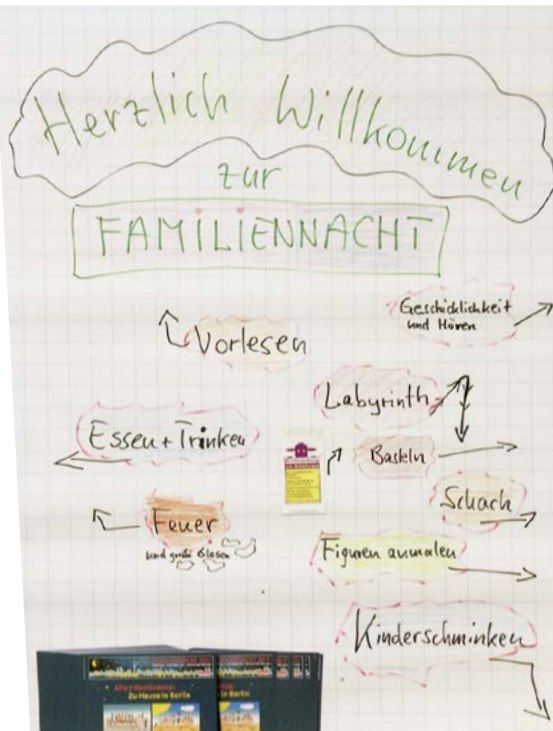 Herzlich Willkommen
zur
FAMILIENNACHT
Geschicklichkeit
und Hören
Vorlesen
Labyrinth
Essen + Trinken
Basteln
Schach
Feuer
und große Blasen
Figuren anmalen
Kinderschminken
Zu Hause in Berlin
in Berlin